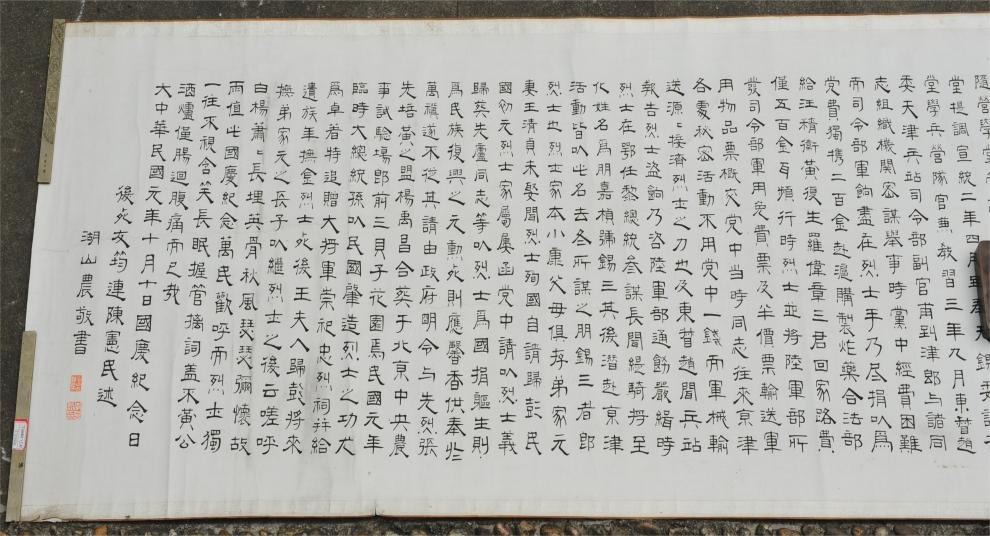 堂提調宣統二年四月
堂學兵營隊官兼教習三年九月東督趙
委天津兵站司令部副官甫到津郎与諸同
志組織機關密謀舉事時黨中經費困難
而司令部軍餉盡在烈士手乃尽捐以爲
党費獨携二百金赴滬購製炸藥合法部
給汪精衛黃復生羅偉章三君回家路費
僅五百金瀕行時烈士並將陸軍部所
發司令部軍用免費票及半價票輸送軍
用物品票概交党中当時同志往來京津
各處秘密活動不用党中一錢而軍械輸
送源〻接濟烈士之力也及東督趙聞兵站
報告烈士盜餉乃咨陸軍部通飭嚴緝時
烈士在鄂任黎總統參謀長聞緹騎將至
化姓名爲朋嘉楨號錫三其後潛赴京津
活動皆以此名去冬所謀之朋錫三者郎
烈士也烈士家本小康父母俱存弟家元
妻王清貞未娶聞烈士殉國自請歸彭民
國初元烈士家屬屢函党中請以烈士義
歸葬先廬同志等以烈士爲國捐軀生則
爲民族復興之元勳死則應馨香供奉於
萬禩遂不從其請由政府明令与先烈張
先培黃之盟楊禹昌合葬于北京中央農
事試驗場郎前三貝子花園焉民國元年
臨時大總統孫以民國肇造烈士之功尤
爲卓著特追贈大將軍崇祀忠烈祠并給
遺族年撫金烈士死後王夫人歸彭將來
撫弟家元之長子以繼烈士之後云嗟呼
白楊蕭〻長埋英骨秋風瑟瑟彌懷故
雨值此國慶紀念萬民歡呼而烈士獨
一往不視含笑長眠握管摛詞盖不黃公
酒爐僅腸迴腹痛而已哉
大中華民國元年十月十日國慶紀念日
後死友筠連陳憲民述
湖山農敬書